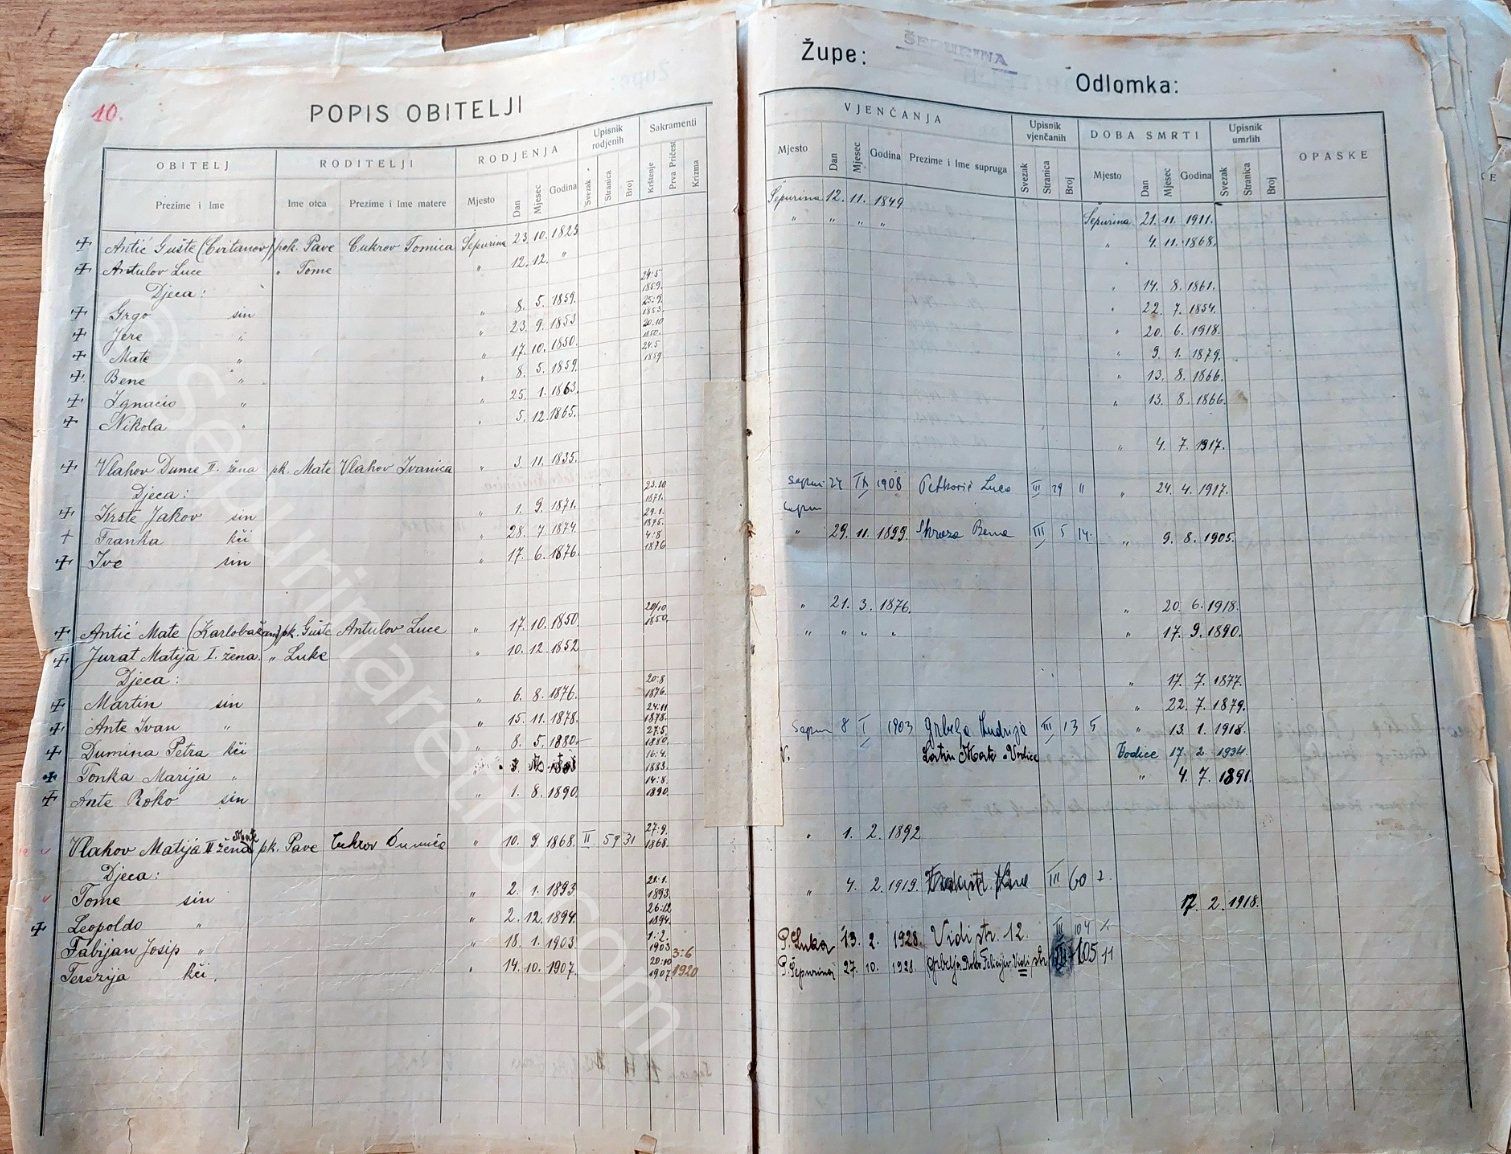 10.
POPIS OBITELJI
Župe: ŠEPURINA
Odlomka:
OBITELJ RODITELJI RODJENJA Upisnik rodjenih Sakramenti
Prezime i Ime Ime otca Prezime i Ime matere Mjesto Dan Mjesec Godina Svezak Stranica Broj Krštenje Prva Pričest Krizma
VJENČANJA Upisnik vjenčanih DOBA SMRTI Upisnik umrlih OPASKE
Mjesto Dan Mjesec Godina Prezime i Ime supruga Svezak Stranica Broj Mjesto Dan Mjesec Godina Svezak Stranica Broj
Antić Gušte (Cvitanov) pok. Pave Cukrov Tomica Šepurina 23. 10. 1823 Šepurina 12. 11. 1849 Šepurina 21. 11. 1911.
Antulov Luce " Tome " 12. 12. " " " " " " 4. 11. 1868.
Djeca:
Grgo sin " 8. 5. 1859. 24.5 1859. " 14. 8. 1861.
Jere " " 23. 9. 1853 25.9. 1853. " 22. 7. 1854.
Mate " " 17. 10. 1850. 20.10 1850. " 20. 6. 1918.
Bene " " 8. 5. 1859. 24.5 1859 " 9. 1. 1879.
Ignacio " " 25. 1. 1863. " 13. 8. 1866.
Nikola " " 5. 12. 1865. " 13. 8. 1866.
Vlahov Dume II. žena pk. Mate Vlahov Ivanica " 3. 11. 1835. " 4. 7. 1917.
Djeca:
Krste Jakov sin " 1. 9. 1871. 23.10 1871. 1908 Luce III 29 11 " 24. 4. 1917.
Franka kći " 28. 7. 1874 29.1. 1875.
Ive sin " 17. 6. 1876. 4.8 1876 " 29. 11. 1899. Skroza Bema III 5 14. " 9. 8. 1905.
Antić Mate (Karlobažan) pk. Gušte Antulov Luce " 17. 10. 1850 20/10 1850. " 21. 3. 1876. " 20. 6. 1918.
Jurat Matija I. žena " Luke " 10. 12. 1852 " " " " " 17. 9. 1890.
Djeca:
Martin sin " 6. 8. 1876. 20.8 1876. " 17. 7. 1877.
Ante Ivan " " 15. 11. 1878. 24.11 1878. " 22. 7. 1879.
Dumina Petra kći " 8. 5. 1880. 27.5. 1880. 8 I 1903 III 13 5 " 13. 1. 1918.
Tonka Marija " 16.4. 1883. Vodice Vodice 17. 2. 1934.
Ante Roko sin " 1. 8. 1890. 14.8. 1890. " 4. 7. 1891.
Vlahov Matija II žena pk. Pave Cukrov Dumica " 10. 9. 1868. II 59 31 27.9. 1868. " 1. 2. 1892
Djeca:
Tome sin " 2. 1. 1893 1893. " 4. 2. 1919. III 60 2.
Leopoldo " " 2. 12. 1894. 26.12 1894. 17. 2. 1918.
Fabijan Josip " " 18. 1. 1903. 1.2. 1903 P. Luka 13. 2. 1928. Vidi str. 12. III 104
Terezija kći. " 14. 10. 1907. 20.10 1907 3.6 1920 P. Šepurina 27. 10. 1928. Vidi str. 105 11
@sepurinaretro.com